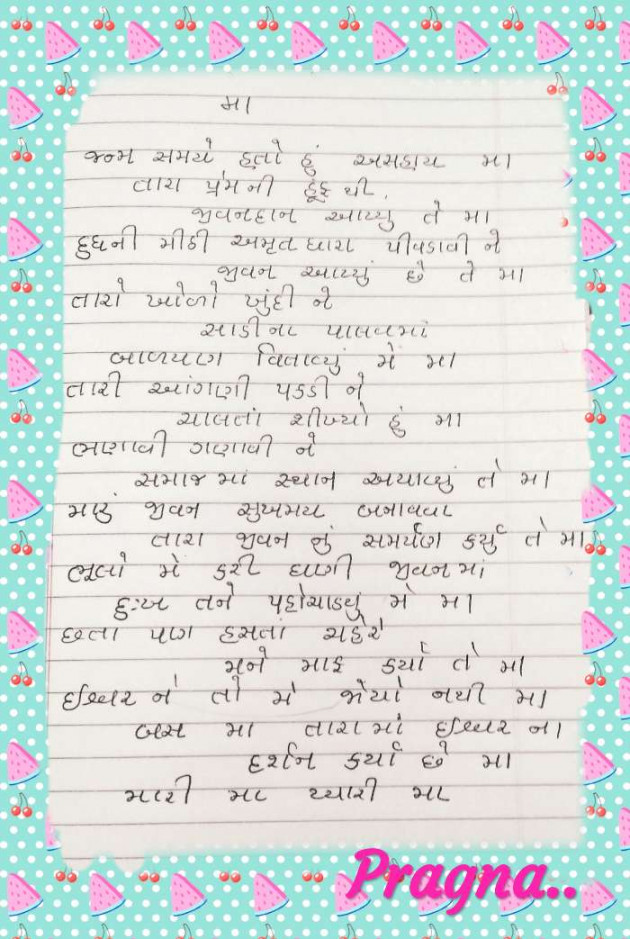 મા
જન્મ સમયે હતો હું અસહાય મા
તારા પ્રેમની હૂંફ થી.
જીવનદાન આપ્યુ તે મા
દુધની મીઠી અમૃત ધારા પીવડાવી ને
જીવન આપ્યું છે તે મા
તારો ખોળો ખુંદી ને
સાડીના પાલવમાં
બાળપણ વિતાવ્યું મે મા
તારી આંગળી પકડી ને
ચાલતાં શીખ્યો હું મા
ભણાવી ગણાવી ને
સમાજ માં સ્થાન અપાવ્યું તે મા
મારું જીવન સુખમય બનાવવા
તારા જીવન નું સમર્પણ કર્યું તે મા
ભૂલો મે કરી ઘણી જીવનમાં
દુઃખ તને પહોચાડ્યું મે મા
છતા પણ હસતાં ચહેરે
મને માફ કર્યો તે મા
ઈશ્વર ને તો મે જોયો નથી મા
બસ મા તારામાં ઈશ્વર ના
દર્શન કર્યા છે મા
મારી મા પ્યારી મા
Pragna..